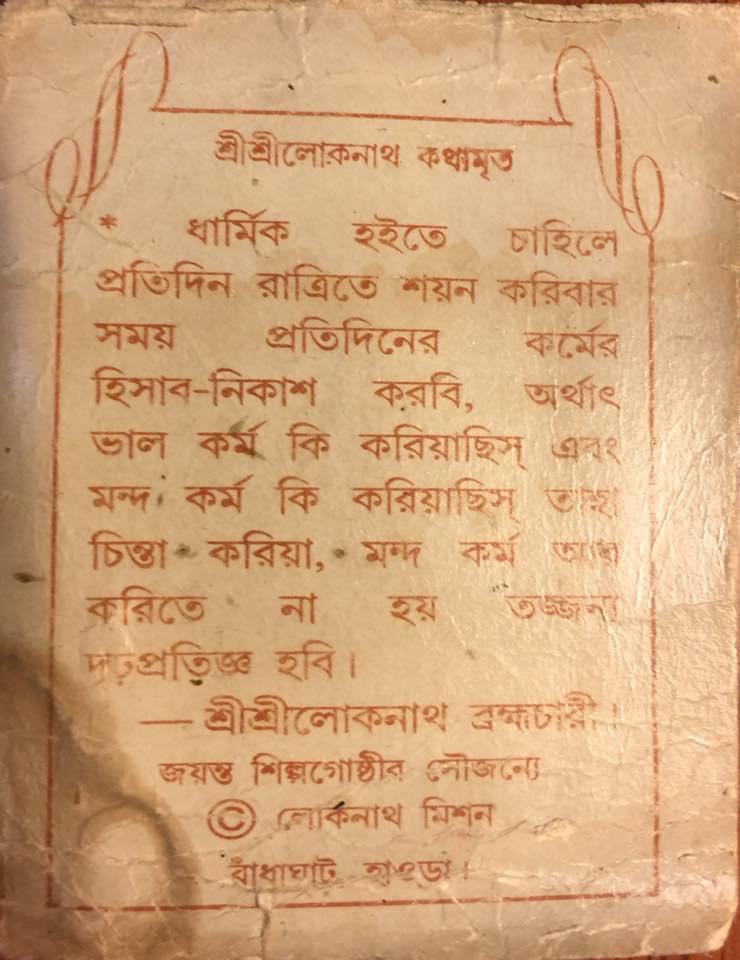 শ্রীশ্রীলোকনাথ কথামৃত
* ধার্মিক হইতে চাহিলে
প্রতিদিন রাত্রিতে শয়ন করিবার
সময় প্রতিদিনের কর্মের
হিসাব-নিকাশ করবি, অর্থাৎ
ভাল কর্ম কি করিয়াছিস্ এবং
মন্দ কর্ম কি করিয়াছিস্ তাহা
চিন্তা করিয়া, মন্দ কর্ম আর
করিতে না হয় তজ্জন্য
দৃঢ়প্রতিজ্ঞ হবি।
— শ্রীশ্রীলোকনাথ ব্রহ্মচারী।
জয়ন্ত শিল্পগোষ্ঠীর সৌজন্যে
© লোকনাথ মিশন
বাঁধাঘাট হাওড়া।